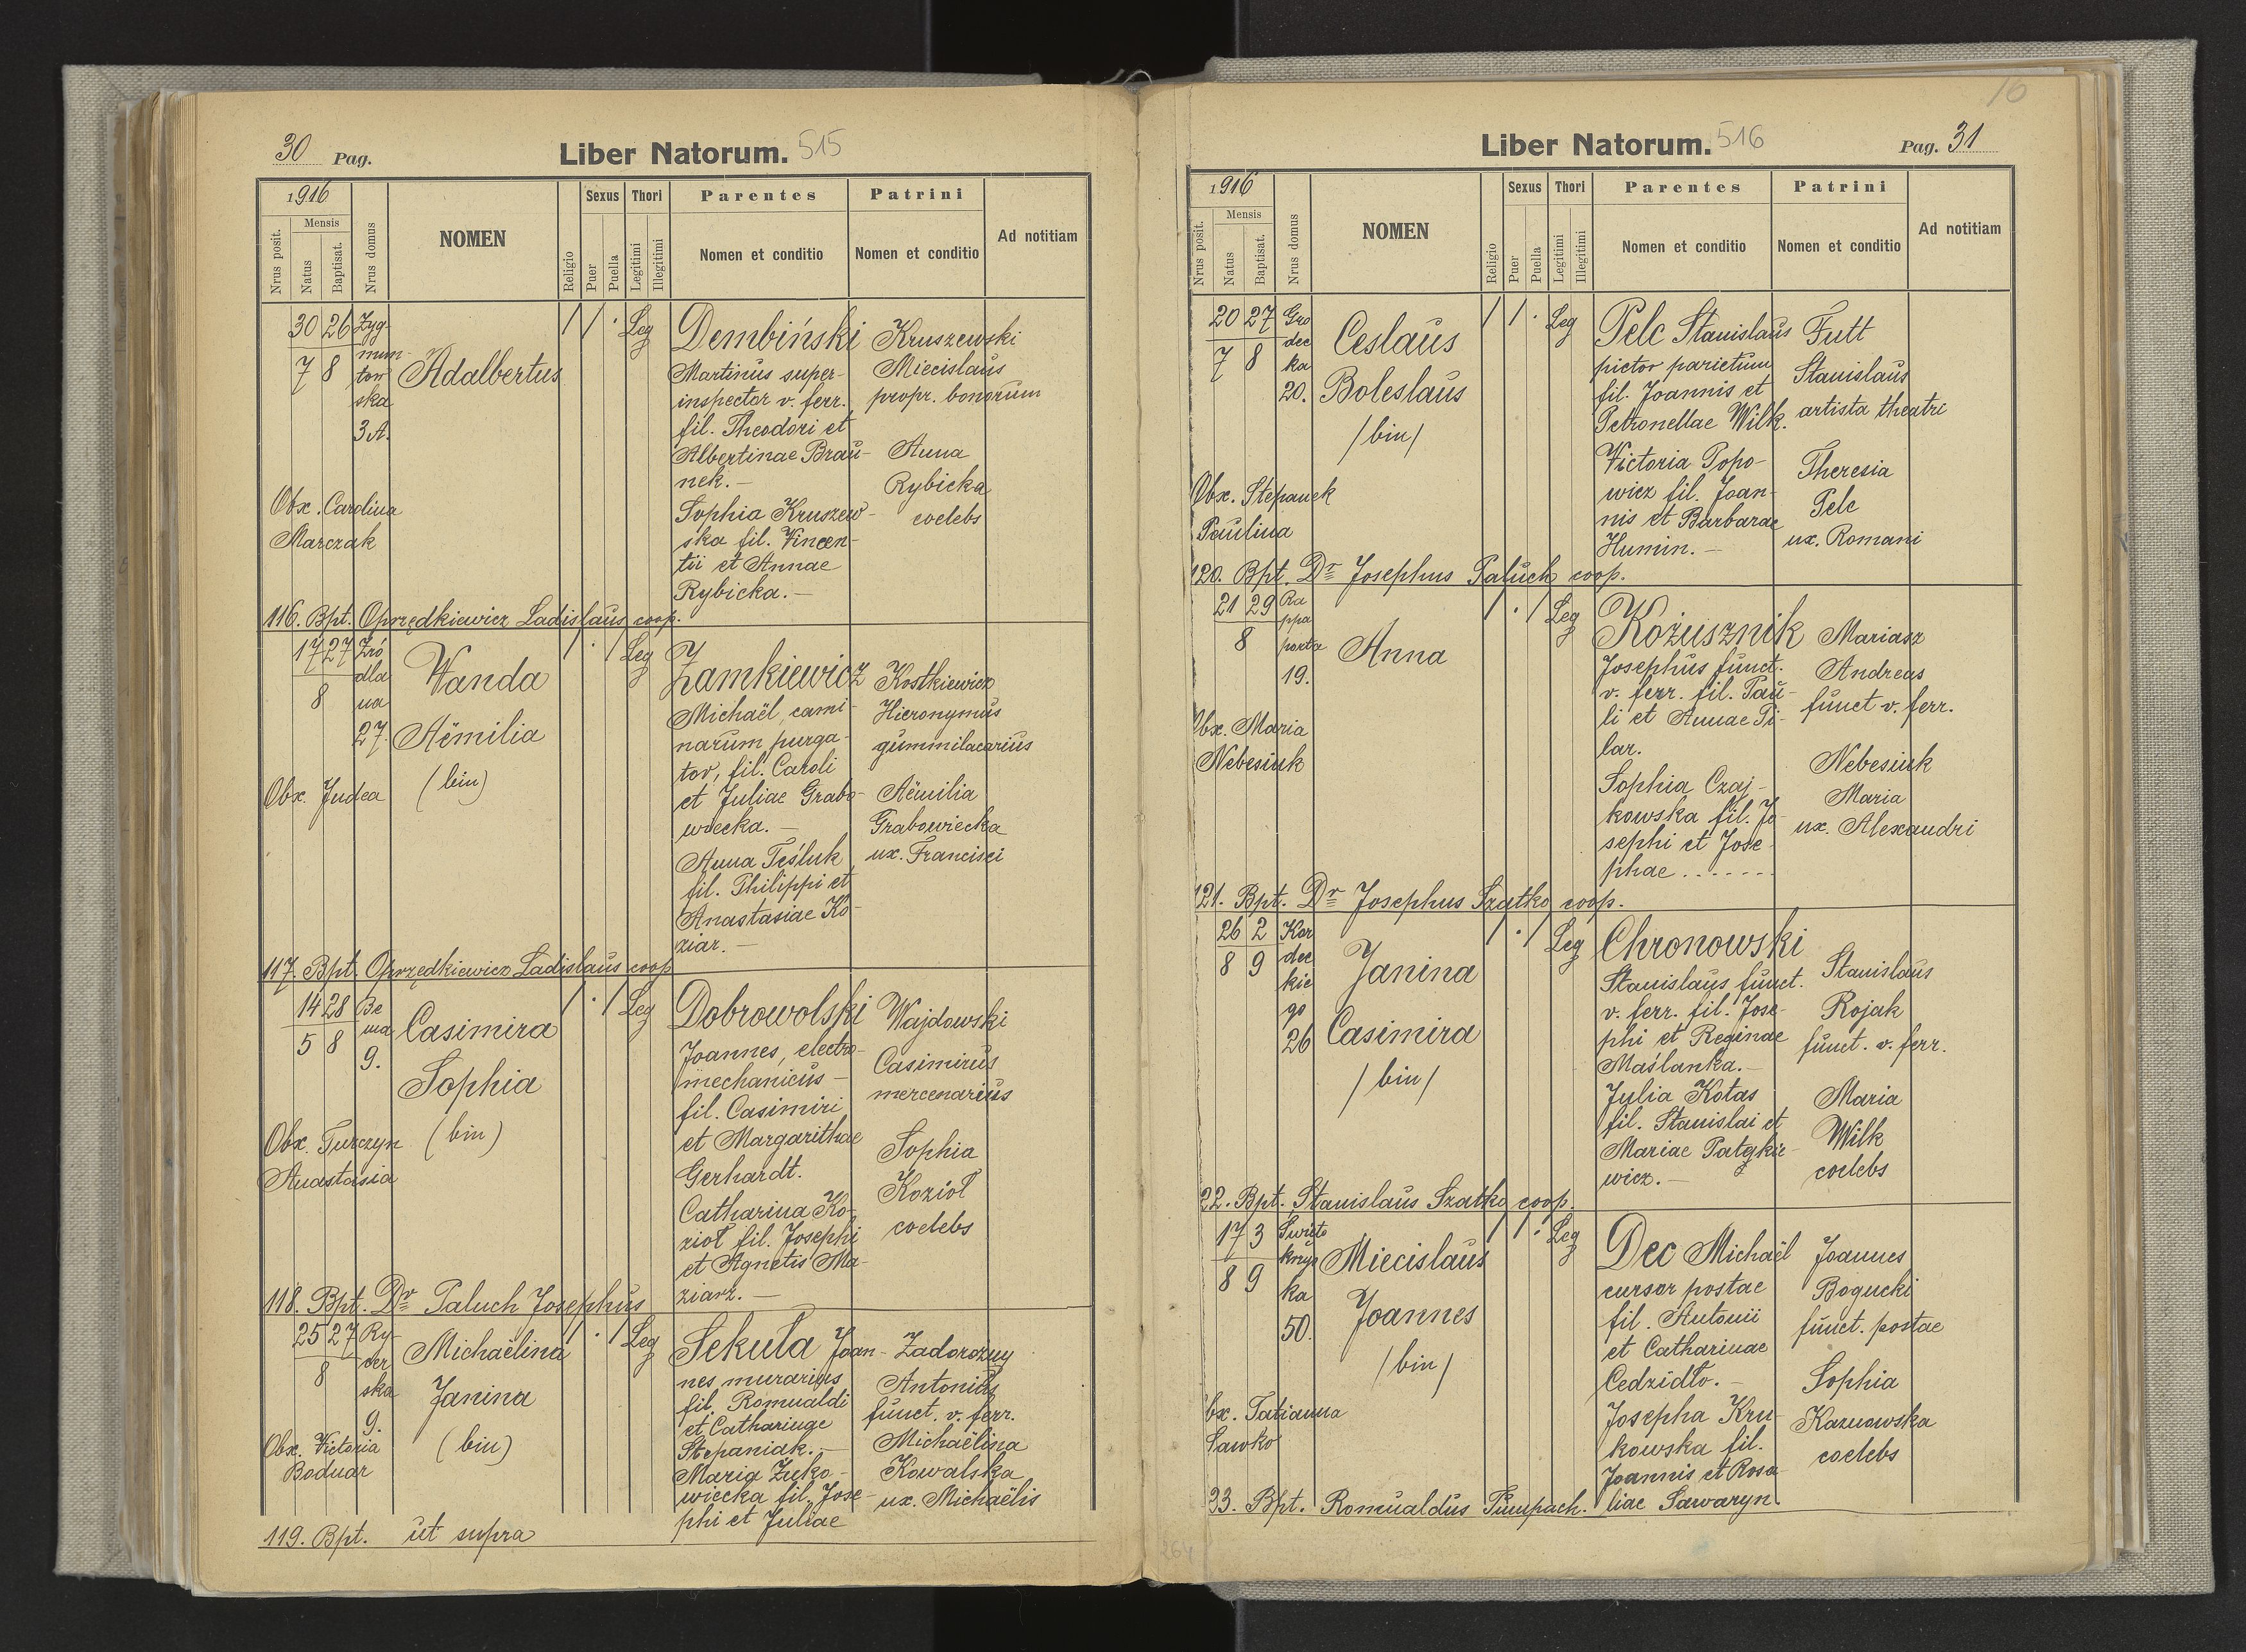 30 Pag.
Liber Natorum. 515
1916
Nrus posit.
Mensis
Natus
Baptisat.
Nrus domus
NOMEN
Religio
Sexus
Puer
Puella
Thori
Legitimi
Illegitimi
Parentes
Nomen et conditio
Patrini
Nomen et conditio
Ad notitiam
30 26 Zyg-
7 8 mun-
tow
ska
3A.
Adalbertus
Leg
Dembiński
Martinus super-
inspector v. ferr.
fil. Theodori et
Albertinae Brau-
nek.-
Sophia Kruszew-
ska fil. Vincen-
tii et Annae
Rybicka.-
Kruszewski
Miecislaus
propr. bonorum
Anna
Rybicka
coelebs
Obx. Carolina
Marczak
116. Bpt. Oprzędkiewicz Ladislaus coop.
17 27 Zró
8 dla
na
27.
Wanda
Aëmilia
(bin)
Leg
Zamkiewicz
Michaël, cami-
narum purga-
tor, fil. Caroli
et Juliae Grabo-
wiecka.-
Anna Teśluk
fil. Philippi et
Anastasiae Ko-
ziar.-
Kostkiewicz
Hieronymus
gummilacarius
Aëmilia
Grabowiecka
ux. Francisci
Obx. Judea
117. Bpt. Oprzędkiewicz Ladislaus coop
14 28 Be
5 8 ma
9.
Casimira
Sophia
(bin)
Leg
Dobrowolski
Joannes, electro-
mechanicus-
fil. Casimiri
et Margarithae
Gerhardt.
Catharina Ko-
zioł fil. Josephi
et Agnetis Ma-
ziarz.-
Wajdowski
Casimirus
mercenarius
Sophia
Kozioł
coelebs
Obx. Turczyn
Anastasia
118. Bpt. Dr Paluch Josephus
25 27 Ry-
8 cer
ska
9.
Michaëlina
Janina
(bin)
Leg
Sekuła Joan-
nes murarius
fil. Romualdi
et Catharinae
Stepaniak.-
Maria Żuko-
wiecka fil. Jose-
phi et Juliae
Zadorożny
Antonius
funct. v. ferr.
Michaëlina
Kowalska
ux. Michaëlis
Obx. Victoria
Bodnar
119. Bpt. ut supra
16
Liber Natorum. 516
Pag. 31
1916
Nrus posit.
Mensis
Natus
Baptisat.
Nrus domus
NOMEN
Religio
Sexus
Puer
Puella
Thori
Legitimi
Illegitimi
Parentes
Nomen et conditio
Patrini
Nomen et conditio
Ad notitiam
20 27 Gro
7 8 dec
ka
20.
Ceslaus
Boleslaus
/bin/
Leg
Pelc Stanislaus
pictor parietum
fil. Joannis et
Petronellae Wilk.
Victoria Popo-
wicz fil. Joan-
nis et Barbarae
Humin.-
Futt
Stanislaus
artista theatri
Theresia
Pelc
ux. Romani
Obx. Stepanek
Paulina
120. Bpt. Dr Josephus Paluch coop.
21 29 Ra
8 ppa
porta
19.
Anna
Leg
Kożusznik
Josephus funct.
v. ferr. fil. Pau-
li et Annae Pi-
lar.
Sophia Czaj-
kowska fil. Jo-
sephi et Jose-
phae.......
Mariasz
Andreas
funct v. ferr.
Nebesiuk
Maria
ux. Alexandri
Obx. Maria
Nebesiuk
121. Bpt. Dr Josephus Szatko coop.
26 2 Kor
8 9 dec
kie
go
26
Janina
Casimira
/bin/
Leg
Chronowski
Stanislaus funct.
v. ferr. fil. Jose-
phi et Reginae
Maślanka.-
Julia Kotas
fil. Stanislai et
Mariae Patyckie-
wicz.-
Stanislaus
Rojak
funct. v. ferr.
Maria
Wilk
coelebs
22. Bpt. Stanislaus Szatko coop.
17 3 Święto
8 9 krzys
ka
50.
Miecislaus
Joannes
/bin/
Leg
Dec Michaël
cursor postae
fil. Antonii
et Catharinae
Cedzidło.-
Josepha Kru-
kowska fil.
Joannis et Rosa
liae Sawaryn.
Joannes
Bogucki
funct. postae
Sophia
Kaznowska
coelebs
bx. Tatianna
Sawko
33. Bpt. Romualdus Pumpach.
264